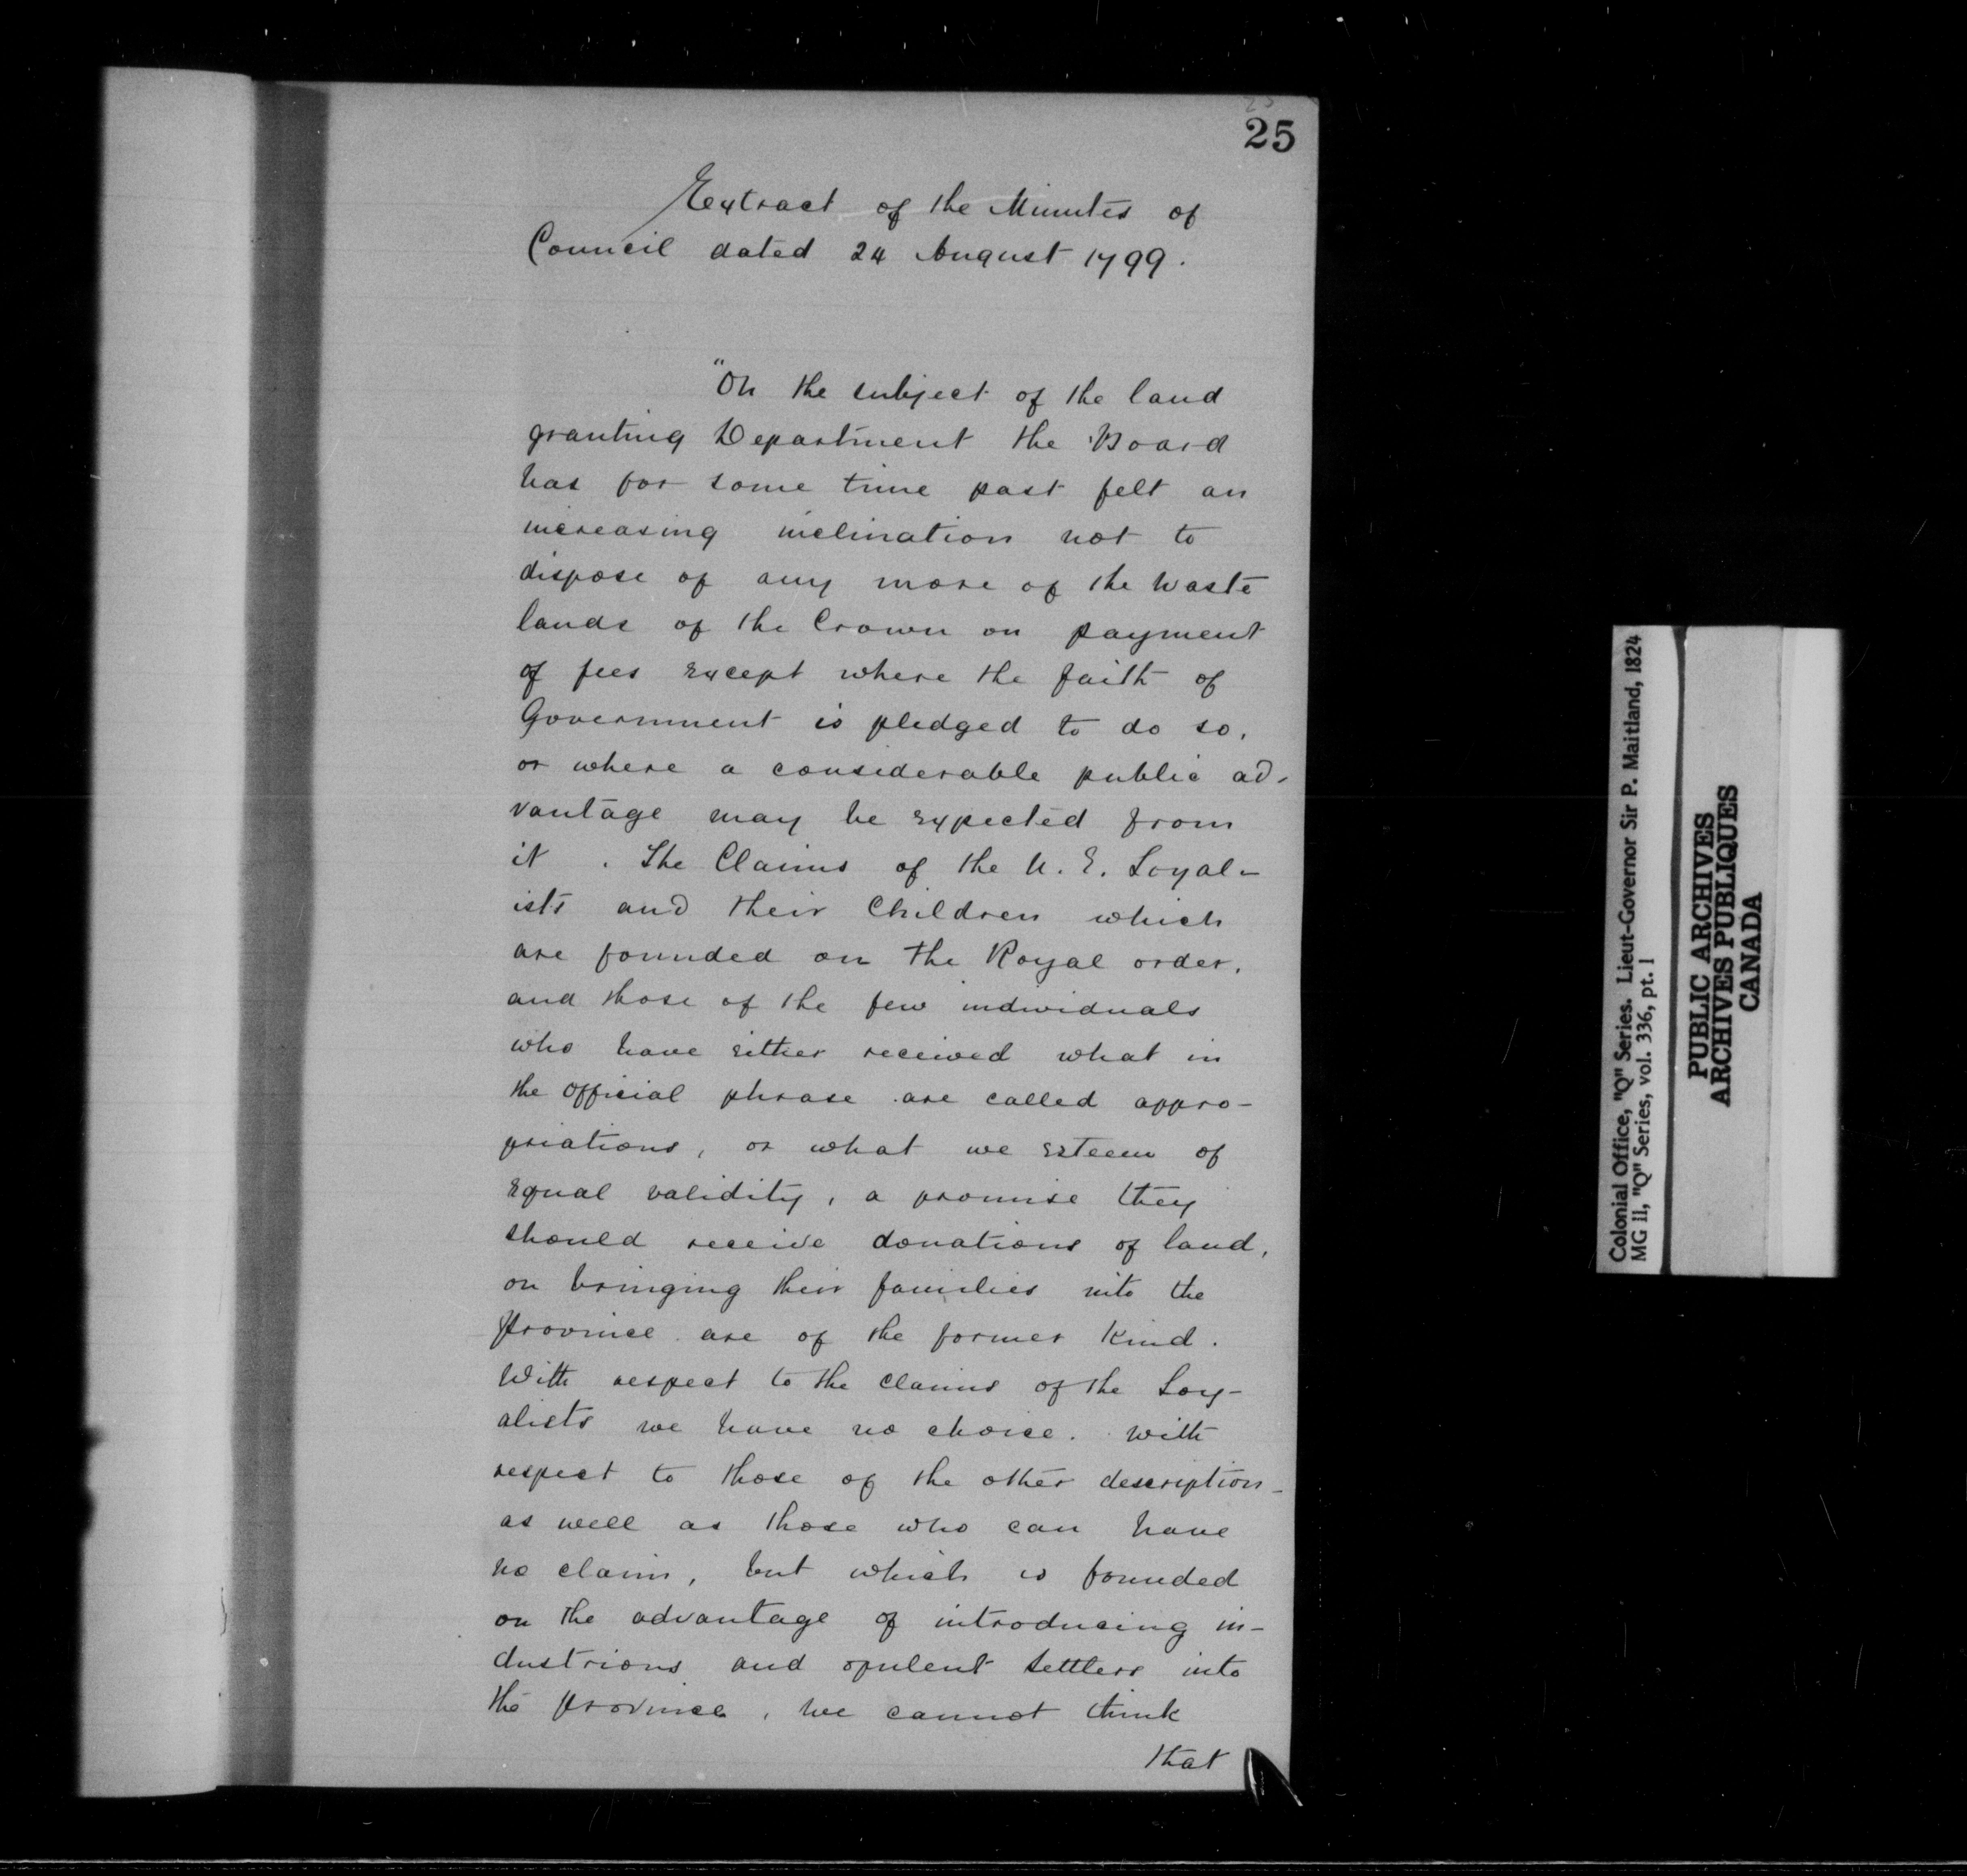 25
Extract of the Minutes of
Council dated 24 August 1799.
"On the subject of the land
granting Department the Board
has for some time past felt an
increasing inclination not to
dispose of any more of the waste
lands of the Crown on payment
of fees except where the faith of
Government is pledged to do so,
or where a considerable public ad-
vantage may be expected from
it. The Claims of the U. E. Loyal-
ists and their Children which
are founded on the Royal order,
and those of the few individuals
who have either received what in
the official phrase are called appro-
priations, or what we esteem of
equal validity, a promise they
should receive donations of land,
on bringing their families into the
Province are of the former kind.
With respect to the claims of the Loy-
alists we have no choice. With
respect to those of the other description-
as well as those who can have
no claim, but which is founded
on the advantage of introducing in-
dustrious and opulent settlers into
the province, we cannot think
that
Colonial Office, "Q" Series. Lieut-Governor Sir P. Maitland, 1824
MG 11, "Q" Series, vol. 336, pt. 1
PUBLIC ARCHIVES
ARCHIVES PUBLIQUES
CANADA